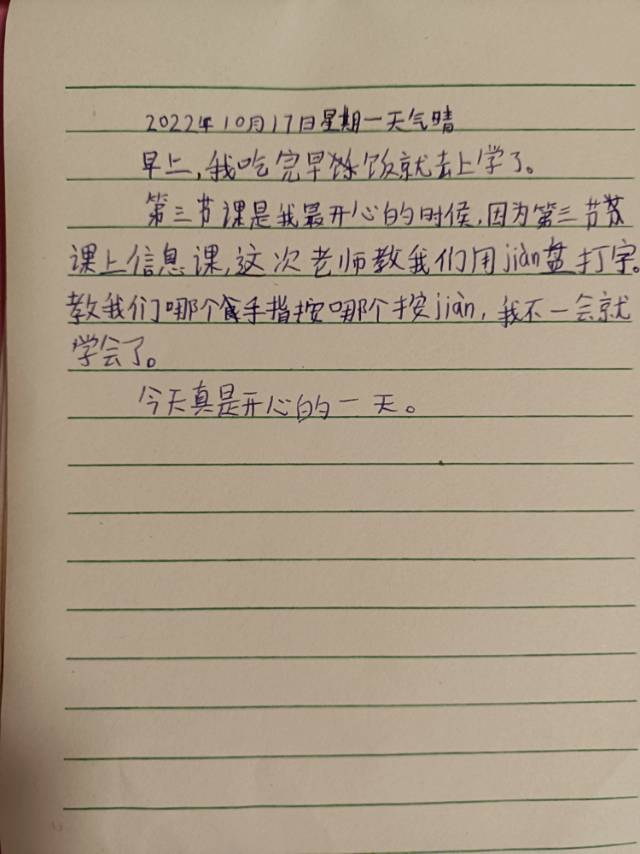 2022年10月17日星期一天气晴
早上,我吃完早饭就去上学了。
第三节课是我最开心的时候,因为第三节
课上信息课,这次老师教我们用jiàn盘打字。
教我们哪个手指按哪个按jiàn,我不一会就
学会了。
今天真是开心的一天。